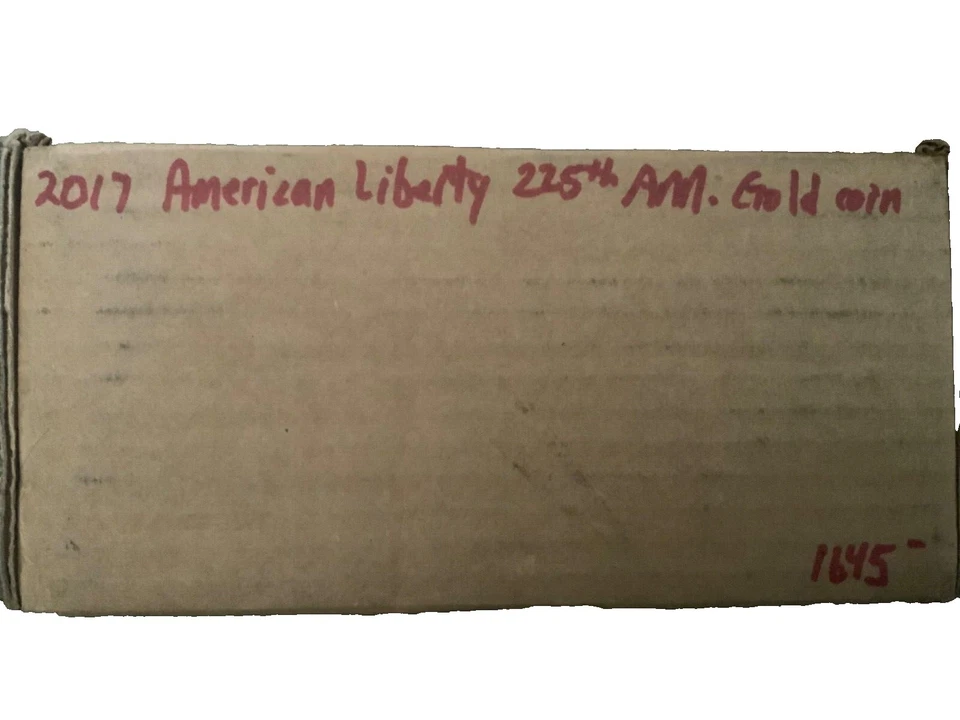 2017 American Liberty 225th AM. Gold coin
1645-